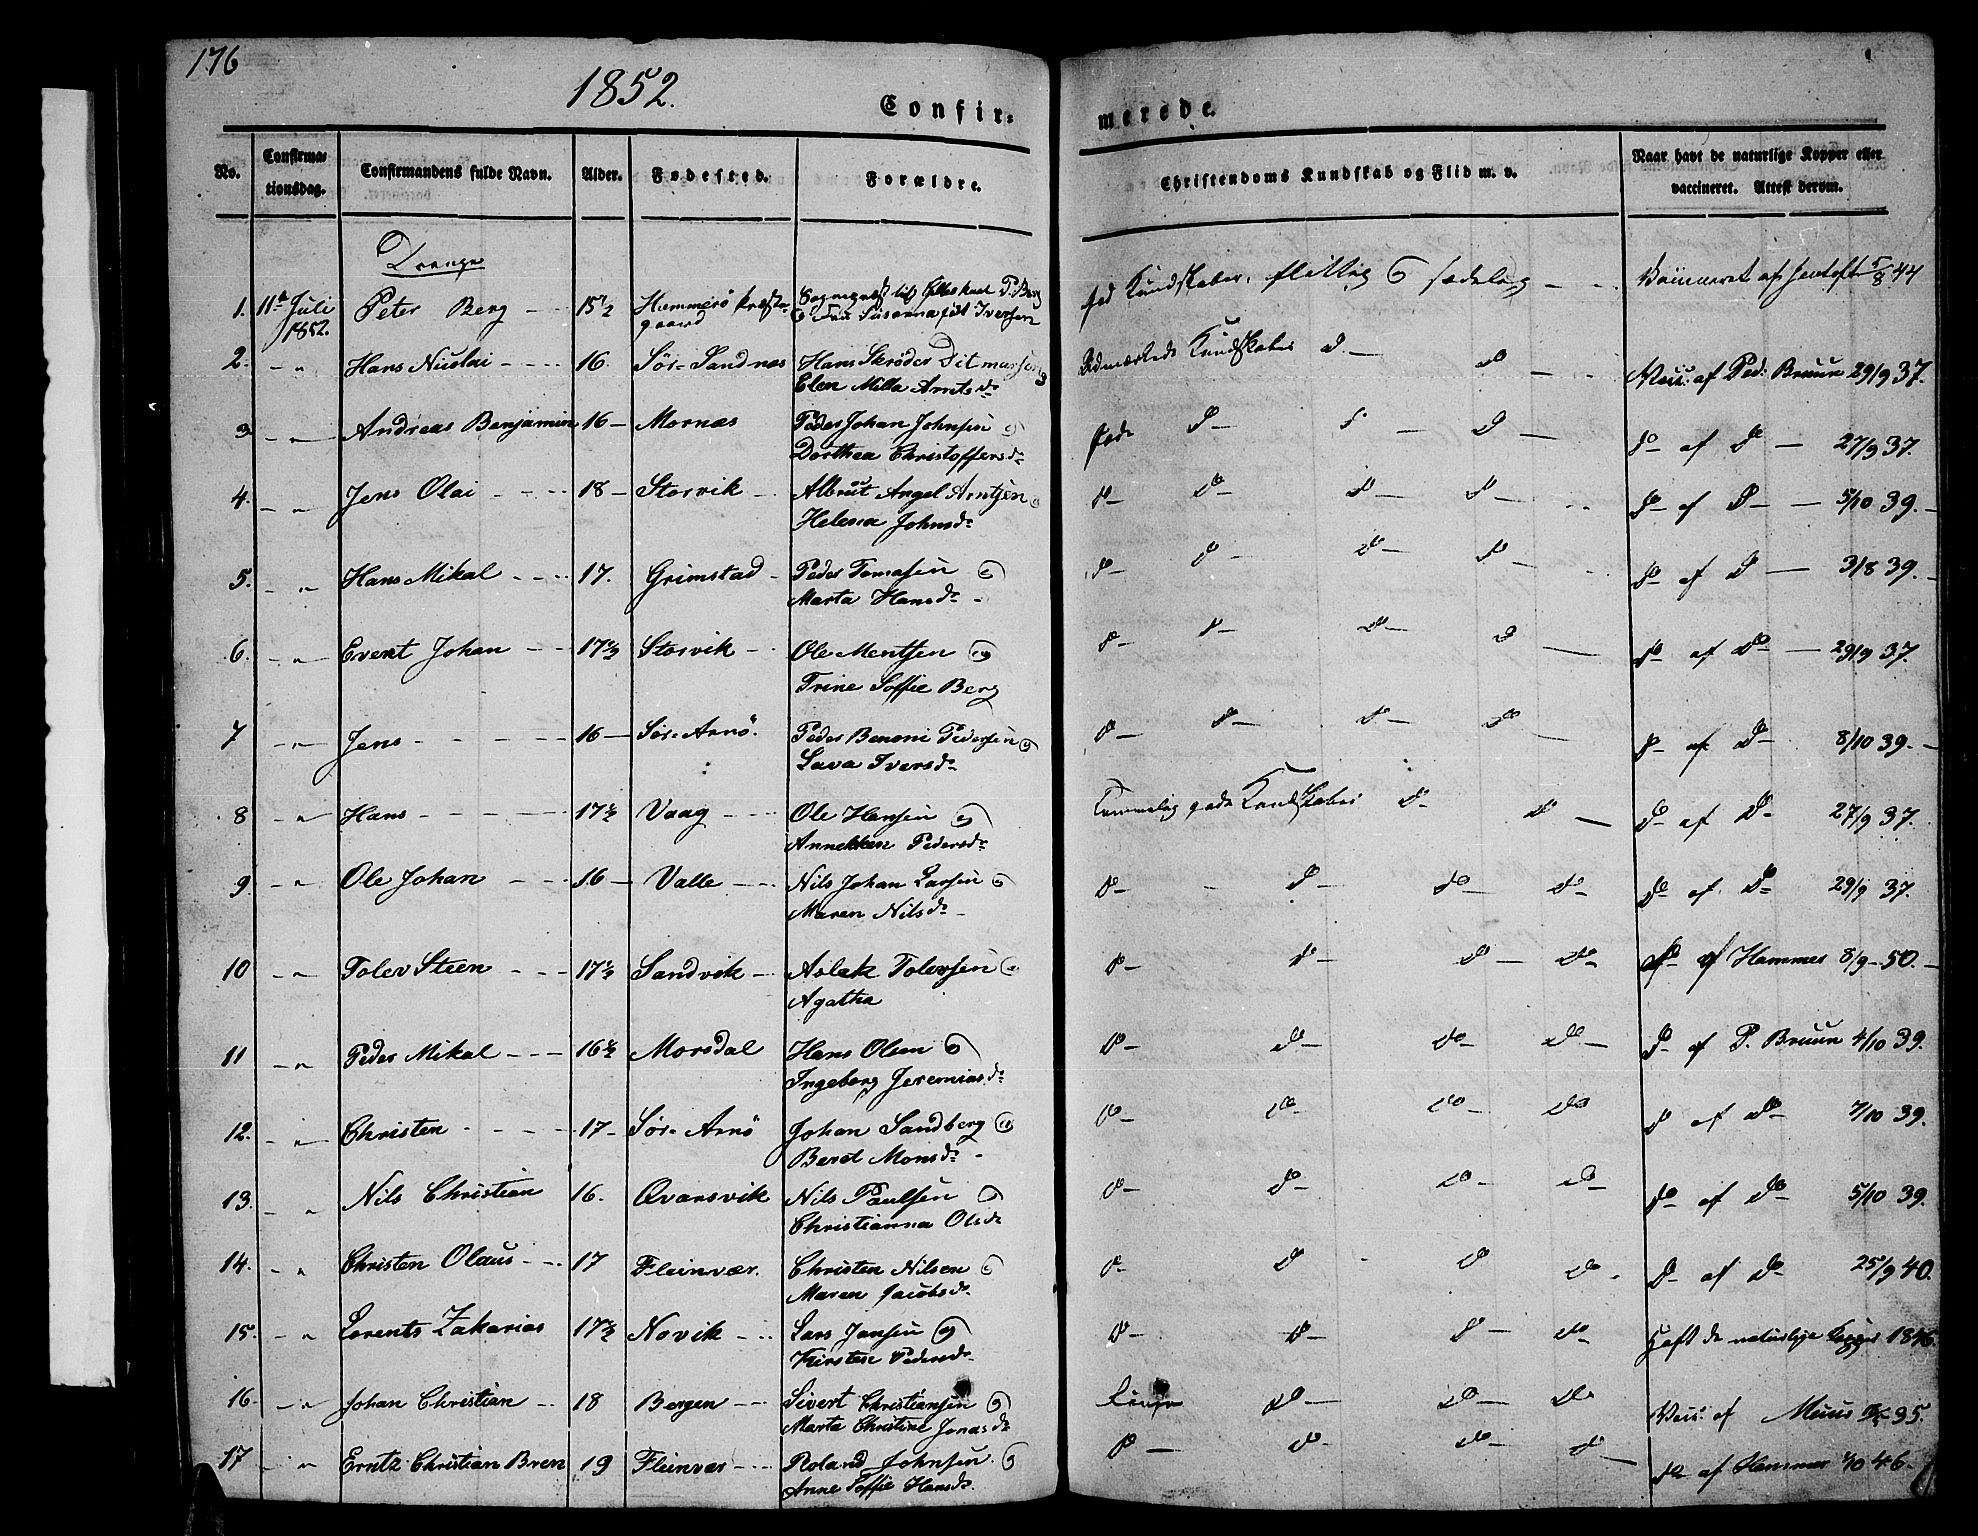 176
1852.
Confir-
merede.
No.
Confirma-
tionsdag.
Confirmandens fulde Navn.
Alder.
Fødested.
Forældre.
Christendoms Kundskab og Flid m. v.
Naar havt de naturlige Kopper eller
vaccineret. Attest derom.
Drenge
1. 11te Juli Peter Berg 15½ Hammerø Præste- Sognepræst P. Berg
1852. gaard Susanna Iversen
Kundskaber, flittig sædelig 5/8 44
2. Hans Nicolai 16. Sør-Sandnes Hans Skrøder Ditmarsen
Elen Milla Arntsdr
Udmærkede Kundskaber do do Vacc. af Ped. Bruun 29/9 37.
3 Andreas Benjamin 16 Mornæs Peder Johan Johnsen
Dorthea Christoffersdr
Gode do do do af do 27/9 37.
4. Jens Olai 18 Storvik Albrut Angel Arntzen
Helena Johnsdr
do do do do do af do 5/10 39.
5. Hans Mikal 17. Grimstad Peder Tomasen
Marta Hansdr
do do do do do af do 3/8 39.
6. Evert Johan 17½ Storvik Ole Mentsen
Trine Soffie Berg
do do do do do af do 29/9 37.
7 Jens 16 Sør-Arnø. Peder Benoni Pedersen
Lava Iversdr
do do do do do af do 8/10 39.
8 Hans 17½ Vaag Ole Hansen
Annekken Pedersdr
Temmelig gode Kundskaber do do do af do 27/9 37.
9 Ole Johan 16 Valle Nils Johan Larsen
Maren Nilsdr
do do do do do af do 29/9 37.
10 Tolev Steen 17½ Sandvik Aslak Tolevsen
Agatha
do do do do do af Hammer 8/9 50.
11 Peder Mikal 16½ Morsdal Hans Olsen
Ingeborg Jeremiasdr
do do do do do af P. Bruun 4/10 39.
12. Christen 17 Sør-Arnø Johan Sandberg
Beret Monsdr
do do do do do af do 7/10 39.
13. Nils Christian 16. Qvarsvik Nils Paulsen
Christianna Olsdr
do do do do do af do 5/10 39.
14. Christen Olaus 17 Fleinvær. Christen Nilsen
Maren Jacobsdr
do do do do do af do 25/9 40.
15. Lorents Zakarias 17½ Novik Lars Jansen
Kirsten Pedersdr
do do do do Haft de naturlige Kopper 1846.
16. Johan Christian 18 Bergen Sivert Christiansen
Marta Christine Jonasdr
do do do Vacc. af Muus 35.
17 Erntz Christian Bren 19 Fleinvær Roland Johnsen
Anne Soffie Hansdr
do do do do do af Hammer 46.